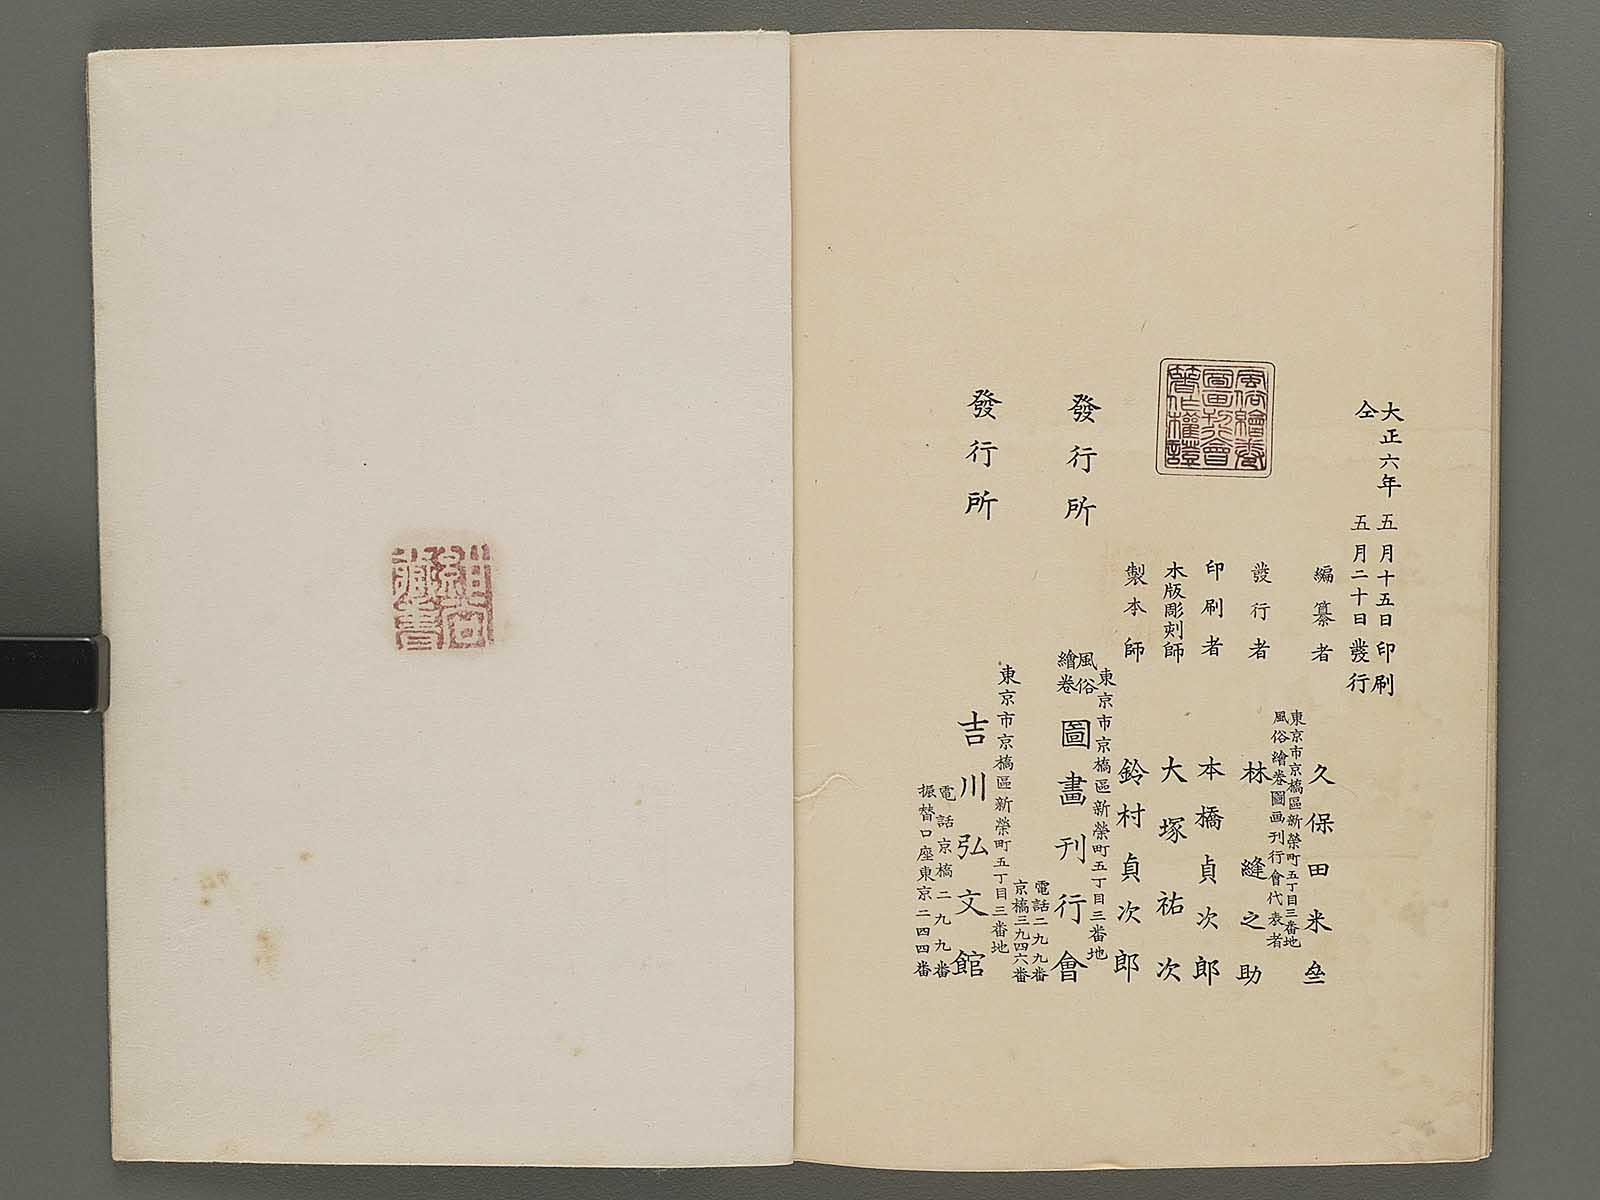 大正六年五月十五日印刷
仝五月二十日發行
編纂者 久保田米斎
東京市京橋區新榮町五丁目三番地
風俗繪卷圖画刊行會代表者
發行者 林縫之助
印刷者 本橋貞次郎
木版彫刻師 大塚祐次
製本師 鈴村貞次郎
風俗繪卷圖畫刊行會著作權證
東京市京橋區新榮町五丁目三番地
發行所 風俗繪卷圖畫刊行會
電話二九九番
京橋三九四六番
東京市京橋區新榮町五丁目三番地
發行所 吉川弘文館
電話京橋二九九番
振替口座東京二四四番
藏書